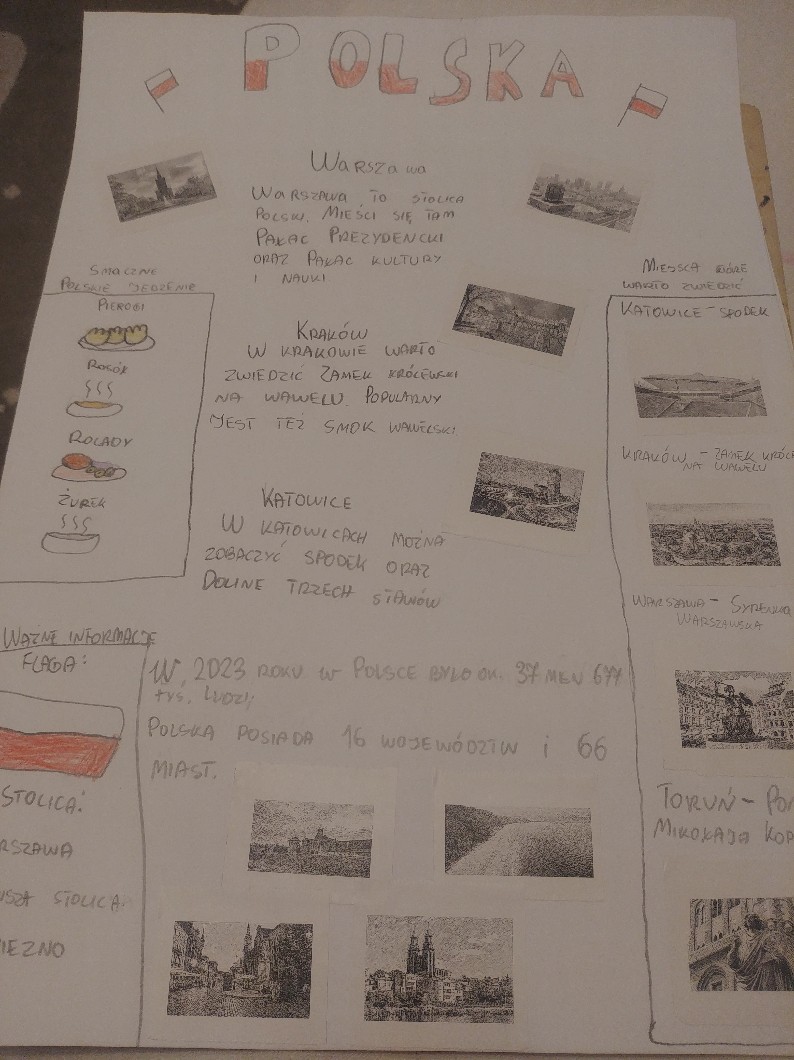 POLSKA
Warszawa
WARSZAWA TO STOLICA
POLSKI. MIEŚCI SIĘ TAM
PAŁAC PREZYDENCKI
ORAZ PAŁAC KULTURY
I NAUKI
SMACZNE
POLSKIE JEDZENIE
PIEROGI
ROSÓŁ
ROLADY
ŻUREK
KRAKÓW
W KRAKOWIE WARTO
ZWIEDZIĆ ZAMEK KRÓLEWSKI
NA WAWELU. POPULARNY
JEST TEŻ SMOK WAWELSKI.
KATOWICE
W KATOWICACH MOŻNA
ZOBACZYĆ SPODEK ORAZ
DOLINE TRZECH STAWÓW
MIEJSCA KTÓRE
WARTO ZWIEDZIĆ
KATOWICE - SPODEK
KRAKÓW - ZAMEK KRÓL
NA WAWELU
WARSZAWA - SYRENKA
WARSZAWSKA
TORUŃ - PO
MIKOŁAJA KOP
WAŻNE INFORMACJE
FLAGA:
STOLICA:
RSZAWA
STOLICA
IEZNO
W 2023 ROKU W POLSCE BYŁO OK. 37 MLN 677
tys. LUDZI
POLSKA POSIADA 16 WOJEWÓDZTW i 66
MIAST.